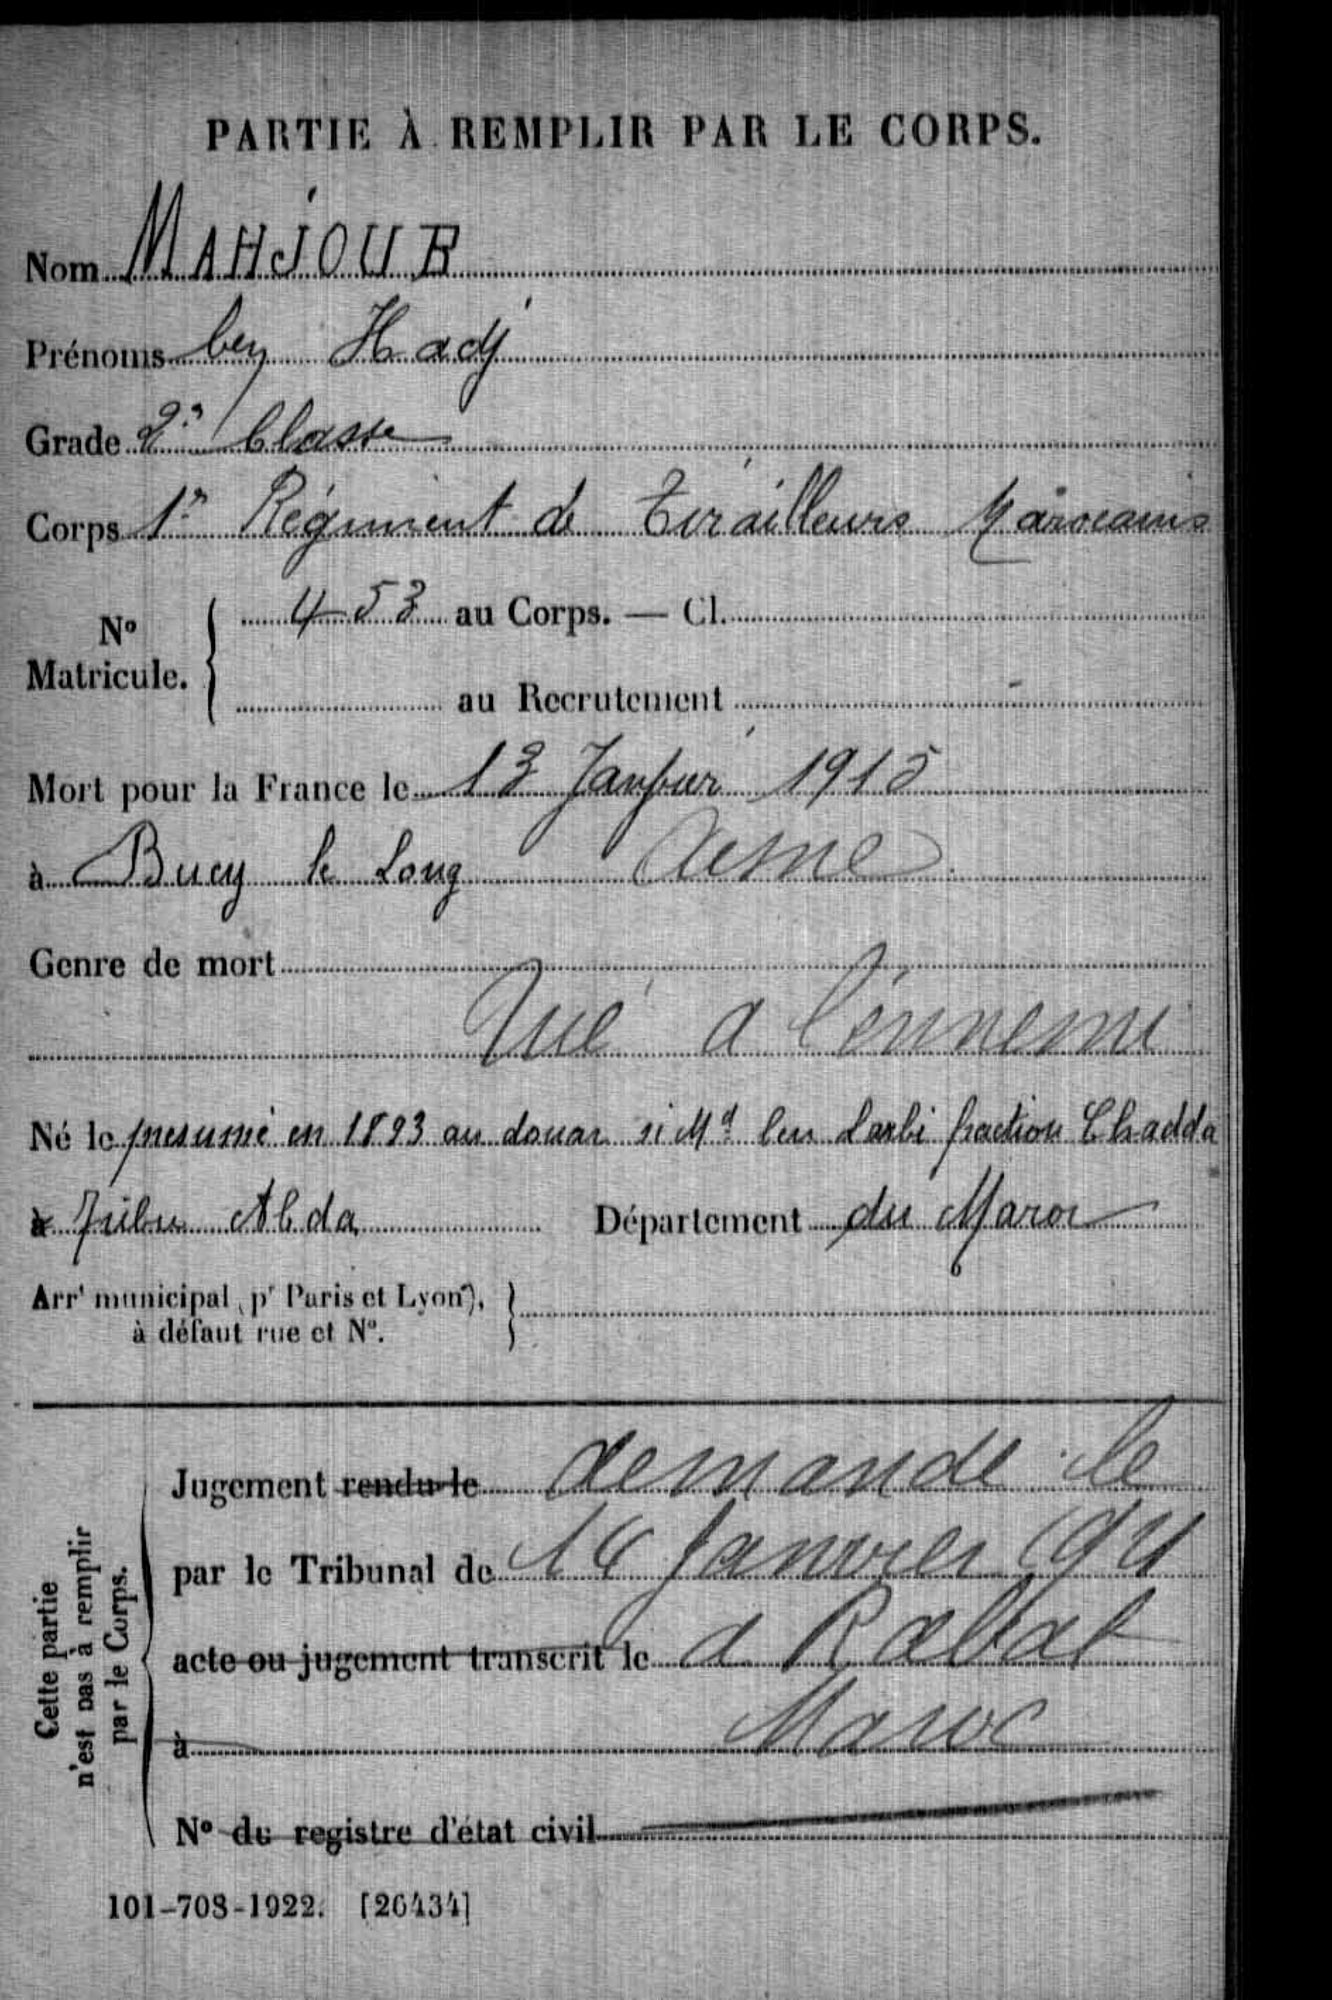 PARTIE À REMPLIR PAR LE CORPS.
Nom MAHJOUB
Prénoms ben Hadj
Grade 2e Classe
Corps 1er Régiment de Tirailleurs Marocains
No Matricule. { 453 au Corps. — Cl.
au Recrutement
Mort pour la France le 13 Janvier 1915
à Bucy le Long Aisne
Genre de mort
Tué à l'ennemi
Né le présumé en 1893 au douar si Md ben Larbi fraction Chadda
à Tribu Abda Département du Maroc
Arrt municipal (pr Paris et Lyon), à défaut rue et No. }
Cette partie n'est pas à remplir par le Corps.
Jugement rendu le demandé le
par le Tribunal de Janvier
acte ou jugement transcrit le à Rabat
à Maroc
No du registre d'état civil
101-708-1922. [26434]